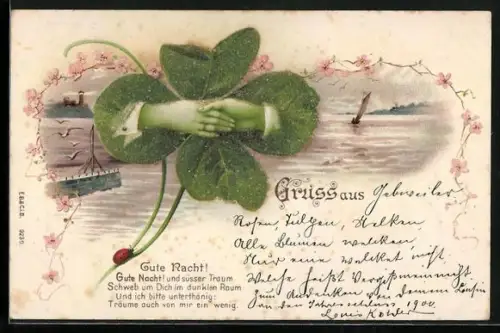 Gruss aus Gebweiler
Rosen, Tulpen, Nelken
Alle Blumen welken,
Nur eine welket nicht,
Welche heißt Vergißmeinnicht
Zum Andenken von deinem Cousin
1900
Louis
Gute Nacht!
Gute Nacht! und süsser Traum
Schweb um Dich im dunklen Raum
Und ich bitte unterthänig:
Träume auch von mir ein wenig.